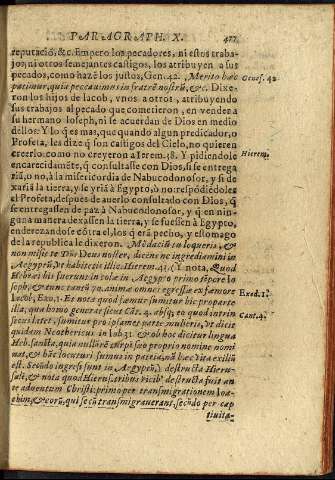 PARAGRAPH. X. 427
reputació, &c. Empero los pecadores, ni estos traba-
jos, ni otros semejantes castigos, los atribuyen a sus
pecados, como hazē los justos, Gen. 42. Merito hæc Genes. 42
patimur, quia peccauimus in fratrē nostrū, &c. Dixe-
ron los hijos de Iacob, vnos a otros, atribuyendo
sus trabajos al pecado que cometieron, en venden a
su hermano Ioseph, ni se acuerdan de Dios en medio
dellos: Y lo q̃ es mas, que quando algun predicador, o
Profeta, les dize q̃ son castigos del Cielo, no quieren
creerlo: como no creyeron a Ierem. 38. Y pidiendole Hierem.
encarecidamēte, q̃ consultasse con Dios, si se entrega
riā, o no, à la misericordia de Nabucodonosor, y si de
xariā la tierra, y se yriā à Egypto, ò no: respōdiédoles
el Profeta, despues de auerlo consultado con Dios, q̃
se entregassen de paz à Nabucodonosor, y q̃ en nin-
guna manera dexassen la tierra, y se fuessen à Egypto,
enderezandose cōtra el, los q̃ erā pecho, y estomago
de la republica le dixeron. Mēdaciū tu loqueris, &
non misit te Dñs Deus noster, dicens ne ingrediamini in
Aegyptū, vt habitetis illic. Hierem. 43. (Y nota, Quod
Hebræi bis fuerunt in Aegypto primo tēpore Io
seph, & tunc omnes egressi ex famore
Iacob, Exo. 1. Et nota quod fœmur sumitur hic pro parte Exod. 1.
illa, qua homo generat sicut Cāt. 4. absq; eo quod intrin Cant. 4.
secus latet. sumitur pro ipsamet parte mulieris, vt dicit
quidam Neothericus in Iob 31. & ob hoc dicitur lingua
Heb. sancta, quia nullū rē turpē suo proprio nomine nomi
nat, & hæc
est. Secūdo ingressi sunt in Aegyptū, destructa Hierusa-
lē, & nota quod Hierusalē destructa fuit an
te aduentum Christi: primo per transmigrationem Ioa-
chim, & eorū, qui secū transmigrauerant, secūdo per cap
tiuita-